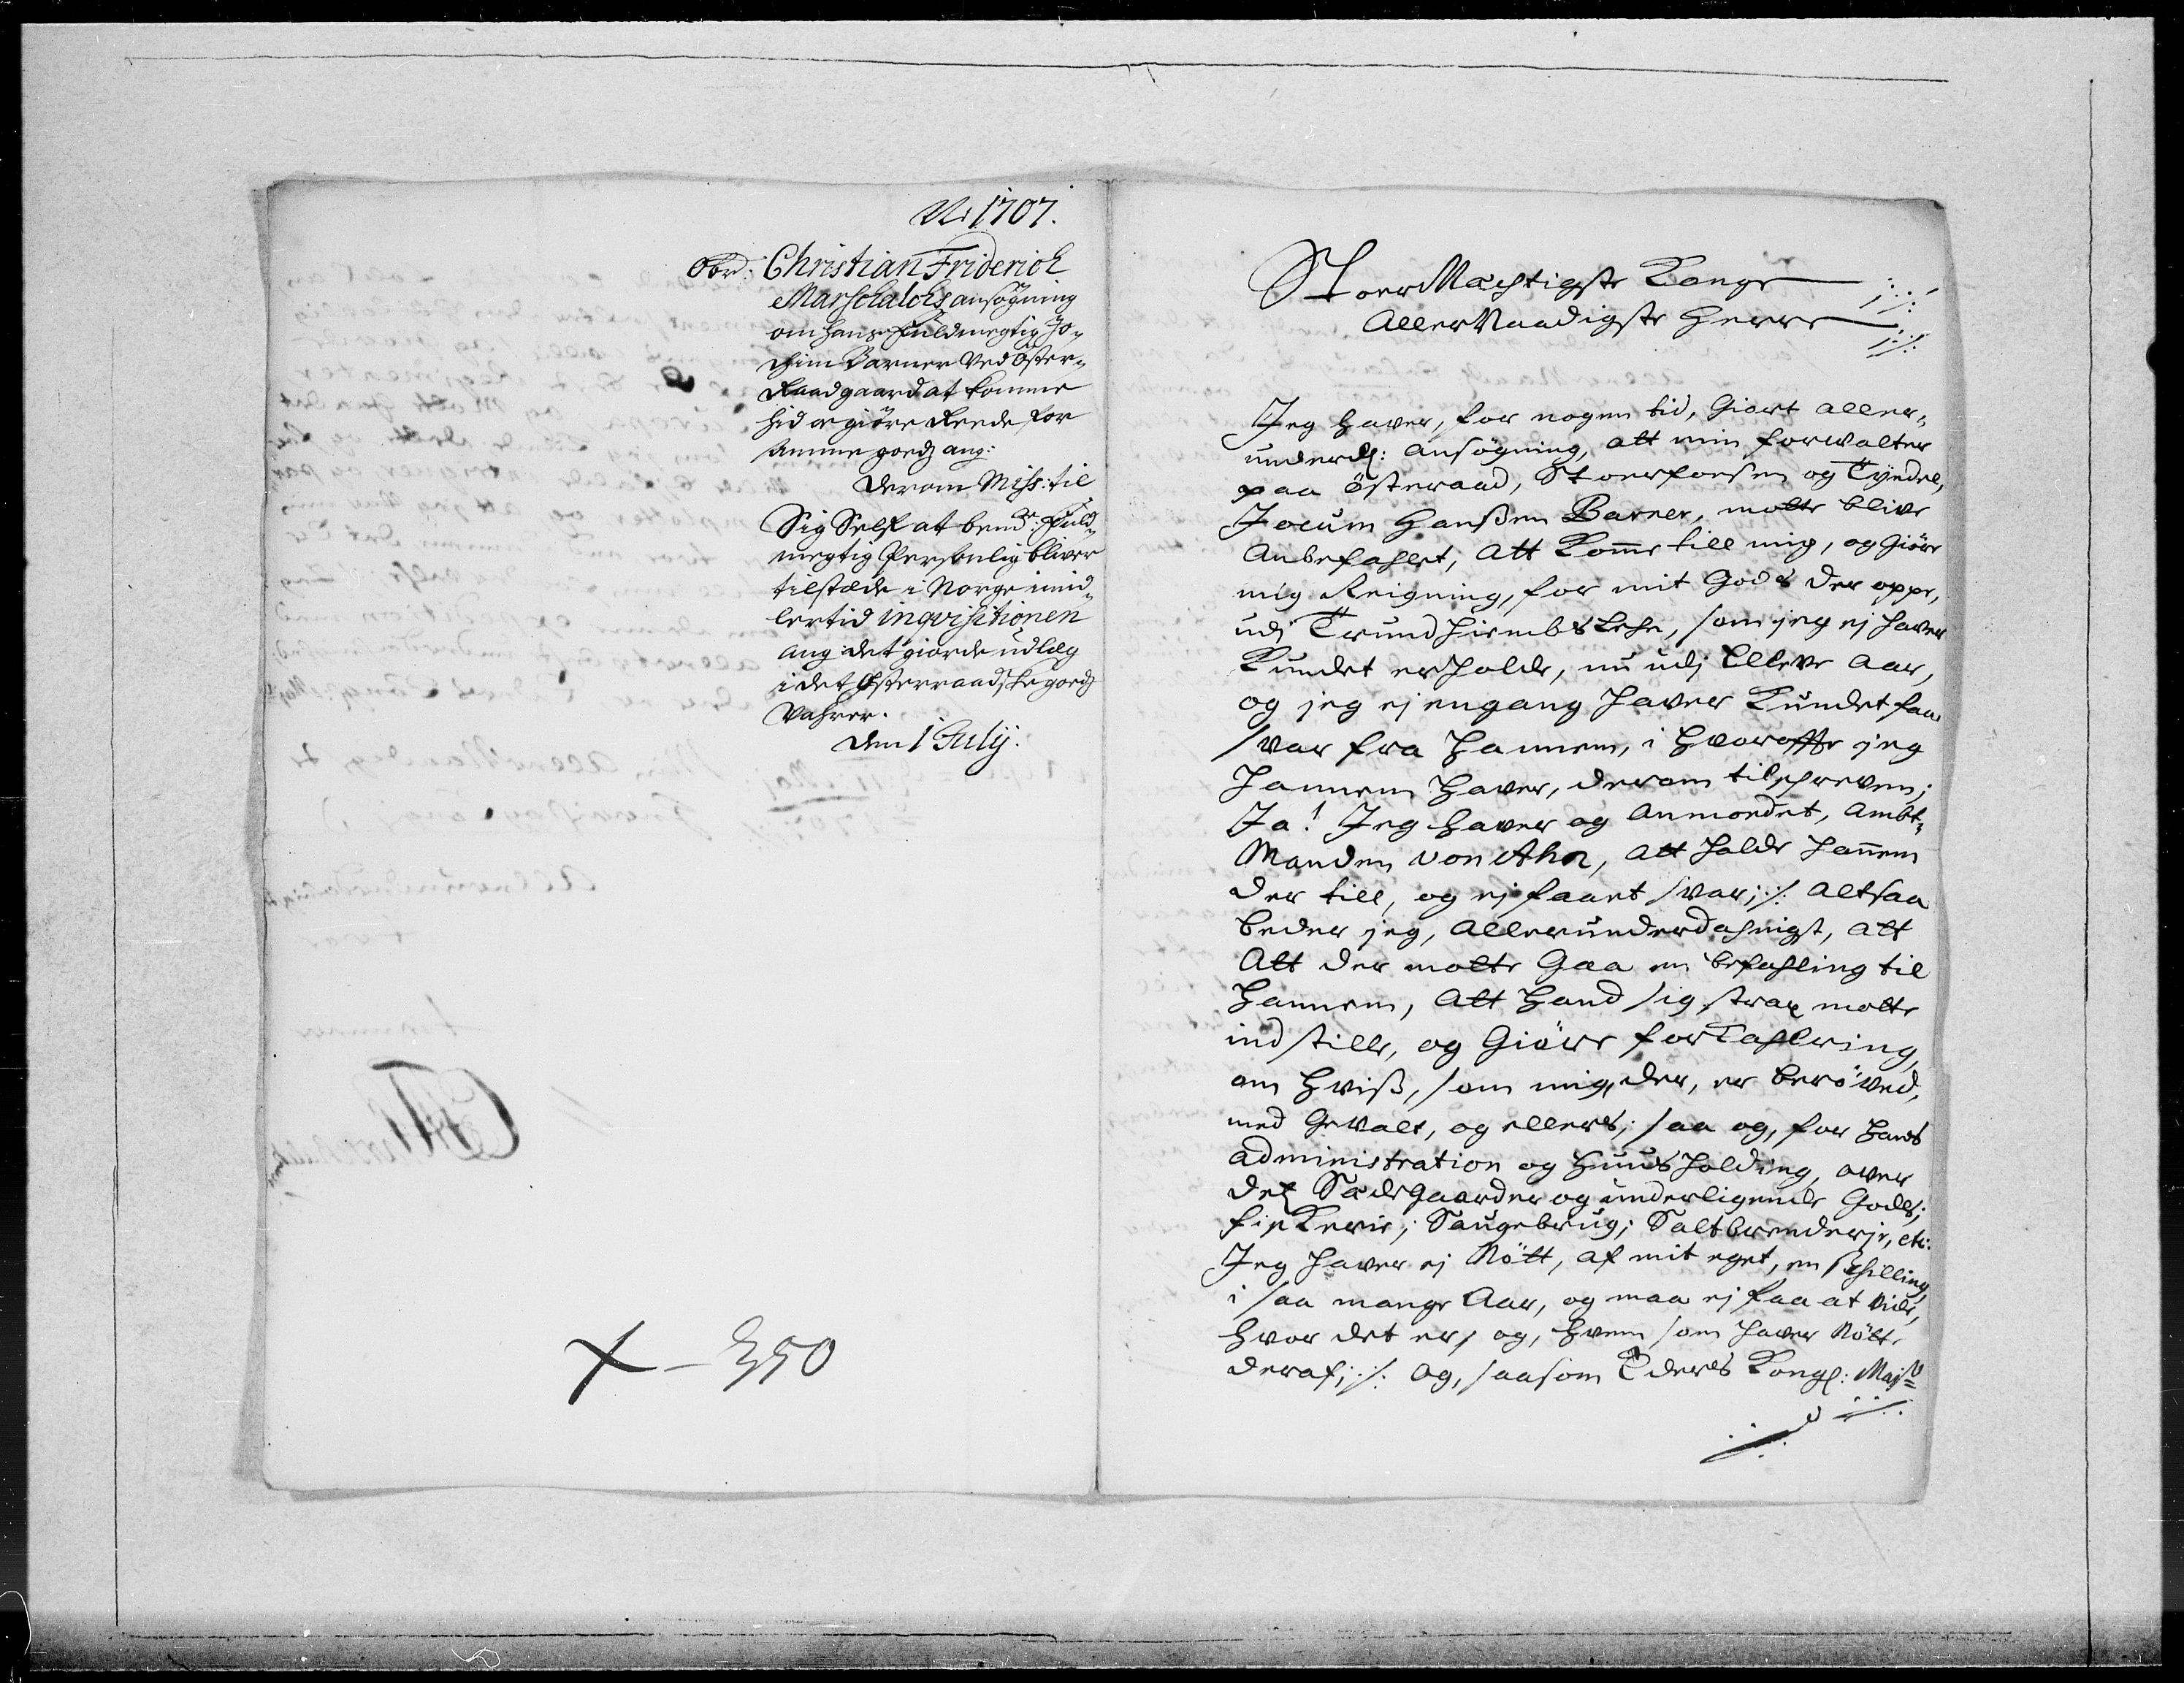 Ao 1707.
Obr: Christian Friderich
Marschalchs ansøgning
om hans Fuldmegtig Jo-
chim Barner ved Øster-
Raadgaard at komme
hid at giøre Rede for
goedz ang:
Derom Miss: til
Sig Self at bemte Fuld-
megtig Personlig bliver
tilstæde i Norge imid-
lertid inqvisitionen
ang det giorde udlæg
i det Østerraadske goedz
vahrer.
den 1 July.
+ - 350
StoerMæchtigste Konge
AllerNaadigste Herre
Jeg haver, for nogen tid, Giort aller-
underd: ansögning, att min forwalter
paa Österaad, Stoerfoesen og Tyedel,
Jocum Hanßen Barner, motte blive
Anbefahlet, Att Komme till mig, og Giöre
mig Reigning, for mit Gods der oppe,
udj Trundhiembs Lehn, som jeg ej haver
Kundet erholde, nu udj Elleve Aar,
og jeg ej engang haver Kundet faa
svar fra Hannem, i hvoroffte jeg
Hannem haver, derom tilschreven;
Ja! Jeg haver og Anmodet, Ambt-
Manden von Ahn, att holde hannem
der till, og ej faaet svar; altsaa
beder jeg, Allerunderdahnigst, att
Att der motte Gaa en befahling til
Hannem, Att Hand sig strax motte
indstille, og Giöre forklahring,
om Hviß, som mig, der, er beröved,
med Gewalt, og ellers; saa og, for Hans
administration og Huusholding, over
de Sædegaarder og underligende Gods;
fiskerie; Saugebrug; Saltbrenderje, etc:
Jeg haver ej Nött, af mit eget, en schilling,
i saa mange Aar, og maa ej faa at vide,
hvor det er, og, hvem som haver Nött
deraf; og, saasom Eders Kongl: Majt